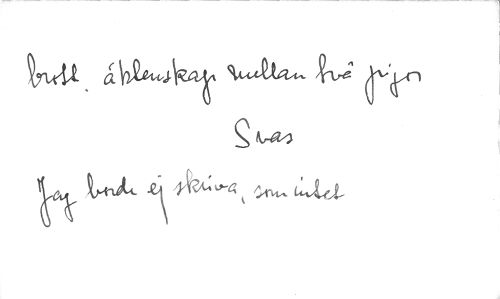 brott. äktenskap mellan två pigor
Svas
Jag borde ej skriva, som intet